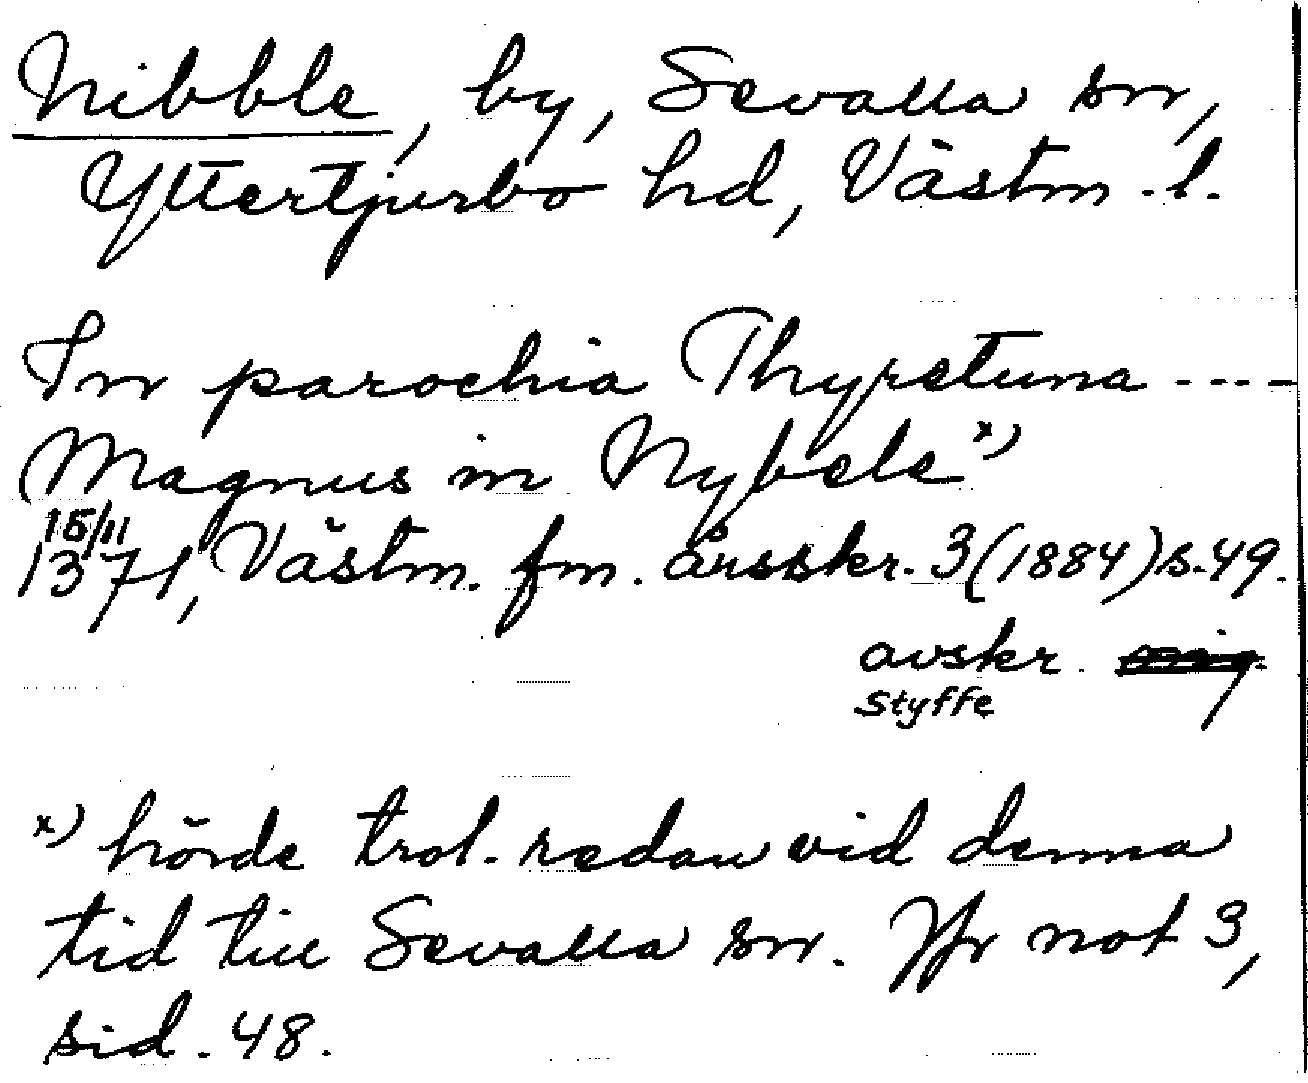 Nibble, by, Sevalla sn,
Yttertjurbo hd, Västm.l.
In parochia Thyretuna ----
Magnus in Nybele x)
15/11
1371, Västm. fm. årsskr. 3(1884) s.49.
avskr.
Styffe
x) hörde trol. redan vid denna
tid till Sevalla sn. Jfr not 3,
sid. 48.